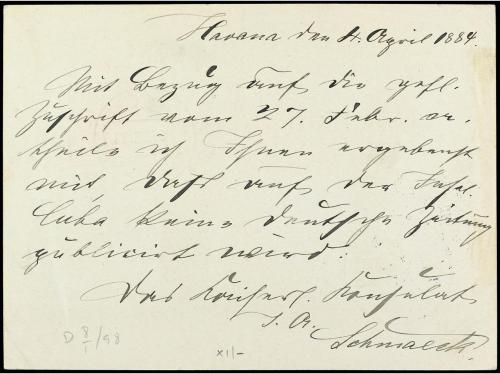 Havana den 4. April 1884.
Mit Bezug auf die gefl.
Zuschrift vom 27. Febr. er-
theile ich Ihnen ergebenst
mit, daß auf der Insel
Cuba keine deutsche Zeitung
publicirt wird.
Das Kaiserl. Konsulat
I. A.
Schmaeck
D 8/1/98
XII/-